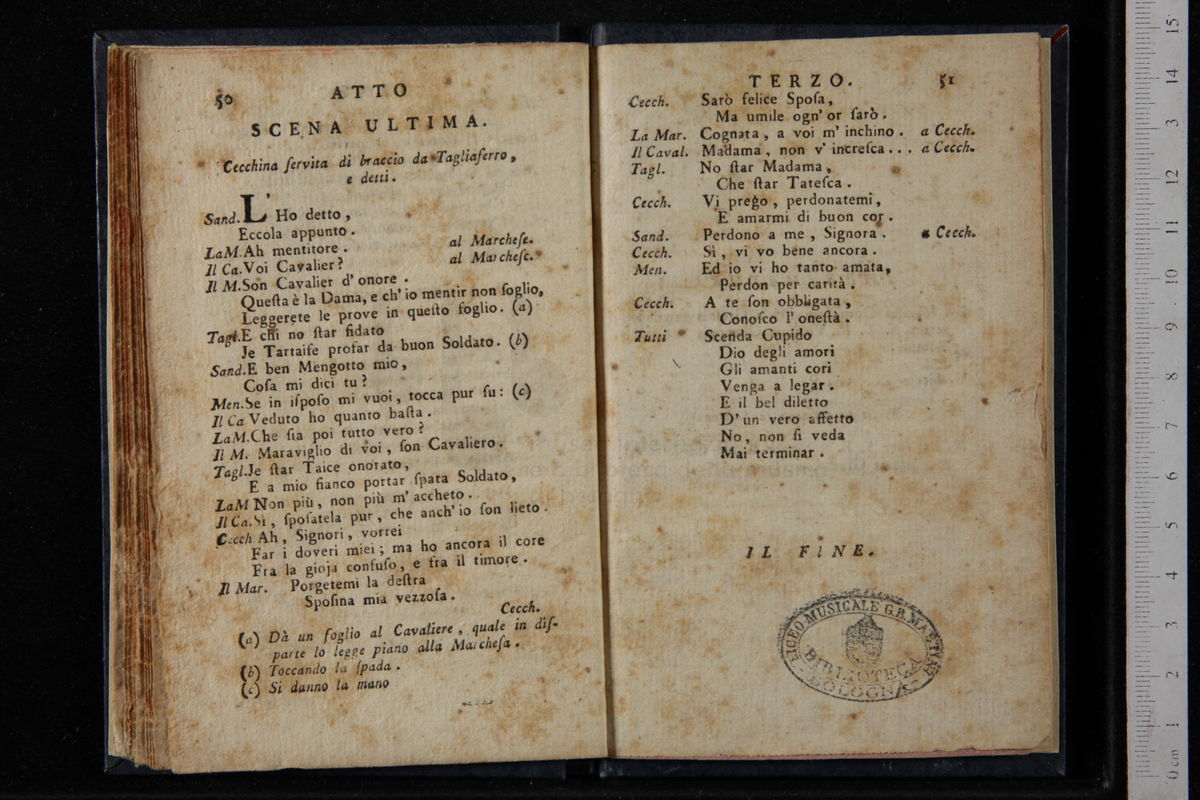 50
ATTO
SCENA ULTIMA.
Cecchina ſervita di braccio da Tagliaferro,
e detti.
Sand. L' Ho detto,
Eccola appunto.
La M. Ah mentitore. al Marcheſe.
Il Ca. Voi Cavalier? al Marcheſe.
Il M. Son Cavalier d' onore.
Queſta è la Dama, e ch' io mentir non ſoglio,
Leggerete le prove in queſto foglio. (a)
Tagl. E chi no ſtar fidato
Je Tartaife profar da buon Soldato. (b)
Sand. E ben Mengotto mio,
Coſa mi dici tu?
Men. Se in iſpoſo mi vuoi, tocca pur ſu: (c)
Il Ca Veduto ho quanto baſta.
La M. Che ſia poi tutto vero?
Il M. Maraviglio di voi, ſon Cavaliero.
Tagl. Je ſtar Taice onorato,
E a mio fianco portar ſpata Soldato,
La M Non più, non più m' accheto.
Il Ca. Sì, ſpoſatela pur, che anch' io ſon lieto.
Cecch Ah, Signori, vorrei
Far i doveri miei; ma ho ancora il core
Fra la gioja confuſo, e fra il timore.
Il Mar. Porgetemi la deſtra
Spoſina mia vezzoſa.
Cecch.
(a) Dà un foglio al Cavaliere, quale in diſ-
parte lo legge piano alla Marcheſa.
(b) Toccando la ſpada.
(c) Si danno la mano
TERZO.
51
Cecch. Sarò felice Spoſa,
Ma umile ogn' or ſarò.
La Mar. Cognata, a voi m' inchino. a Cecch.
Il Caval. Madama, non v' increſca... a Cecch.
Tagl. No ſtar Madama,
Che ſtar Tateſca.
Cecch. Vi prego, perdonatemi,
E amarmi di buon cor.
Sand. Perdono a me, Signora. a Cecch.
Cecch. Sì, vi vo bene ancora.
Men. Ed io vi ho tanto amata,
Perdon per carità.
Cecch. A te ſon obbligata,
Conoſco l' oneſtà.
Tutti Scenda Cupido
Dio degli amori
Gli amanti cori
Venga a legar.
E il bel diletto
D' un vero affetto
No, non ſi veda
Mai terminar.
IL FINE.
LICEO MUSICALE G.B. MARTINI
BIBLIOTECA
BOLOGNA
0 cm 1 2 3 4 5 6 7 8 9 10 11 12 13 14 15